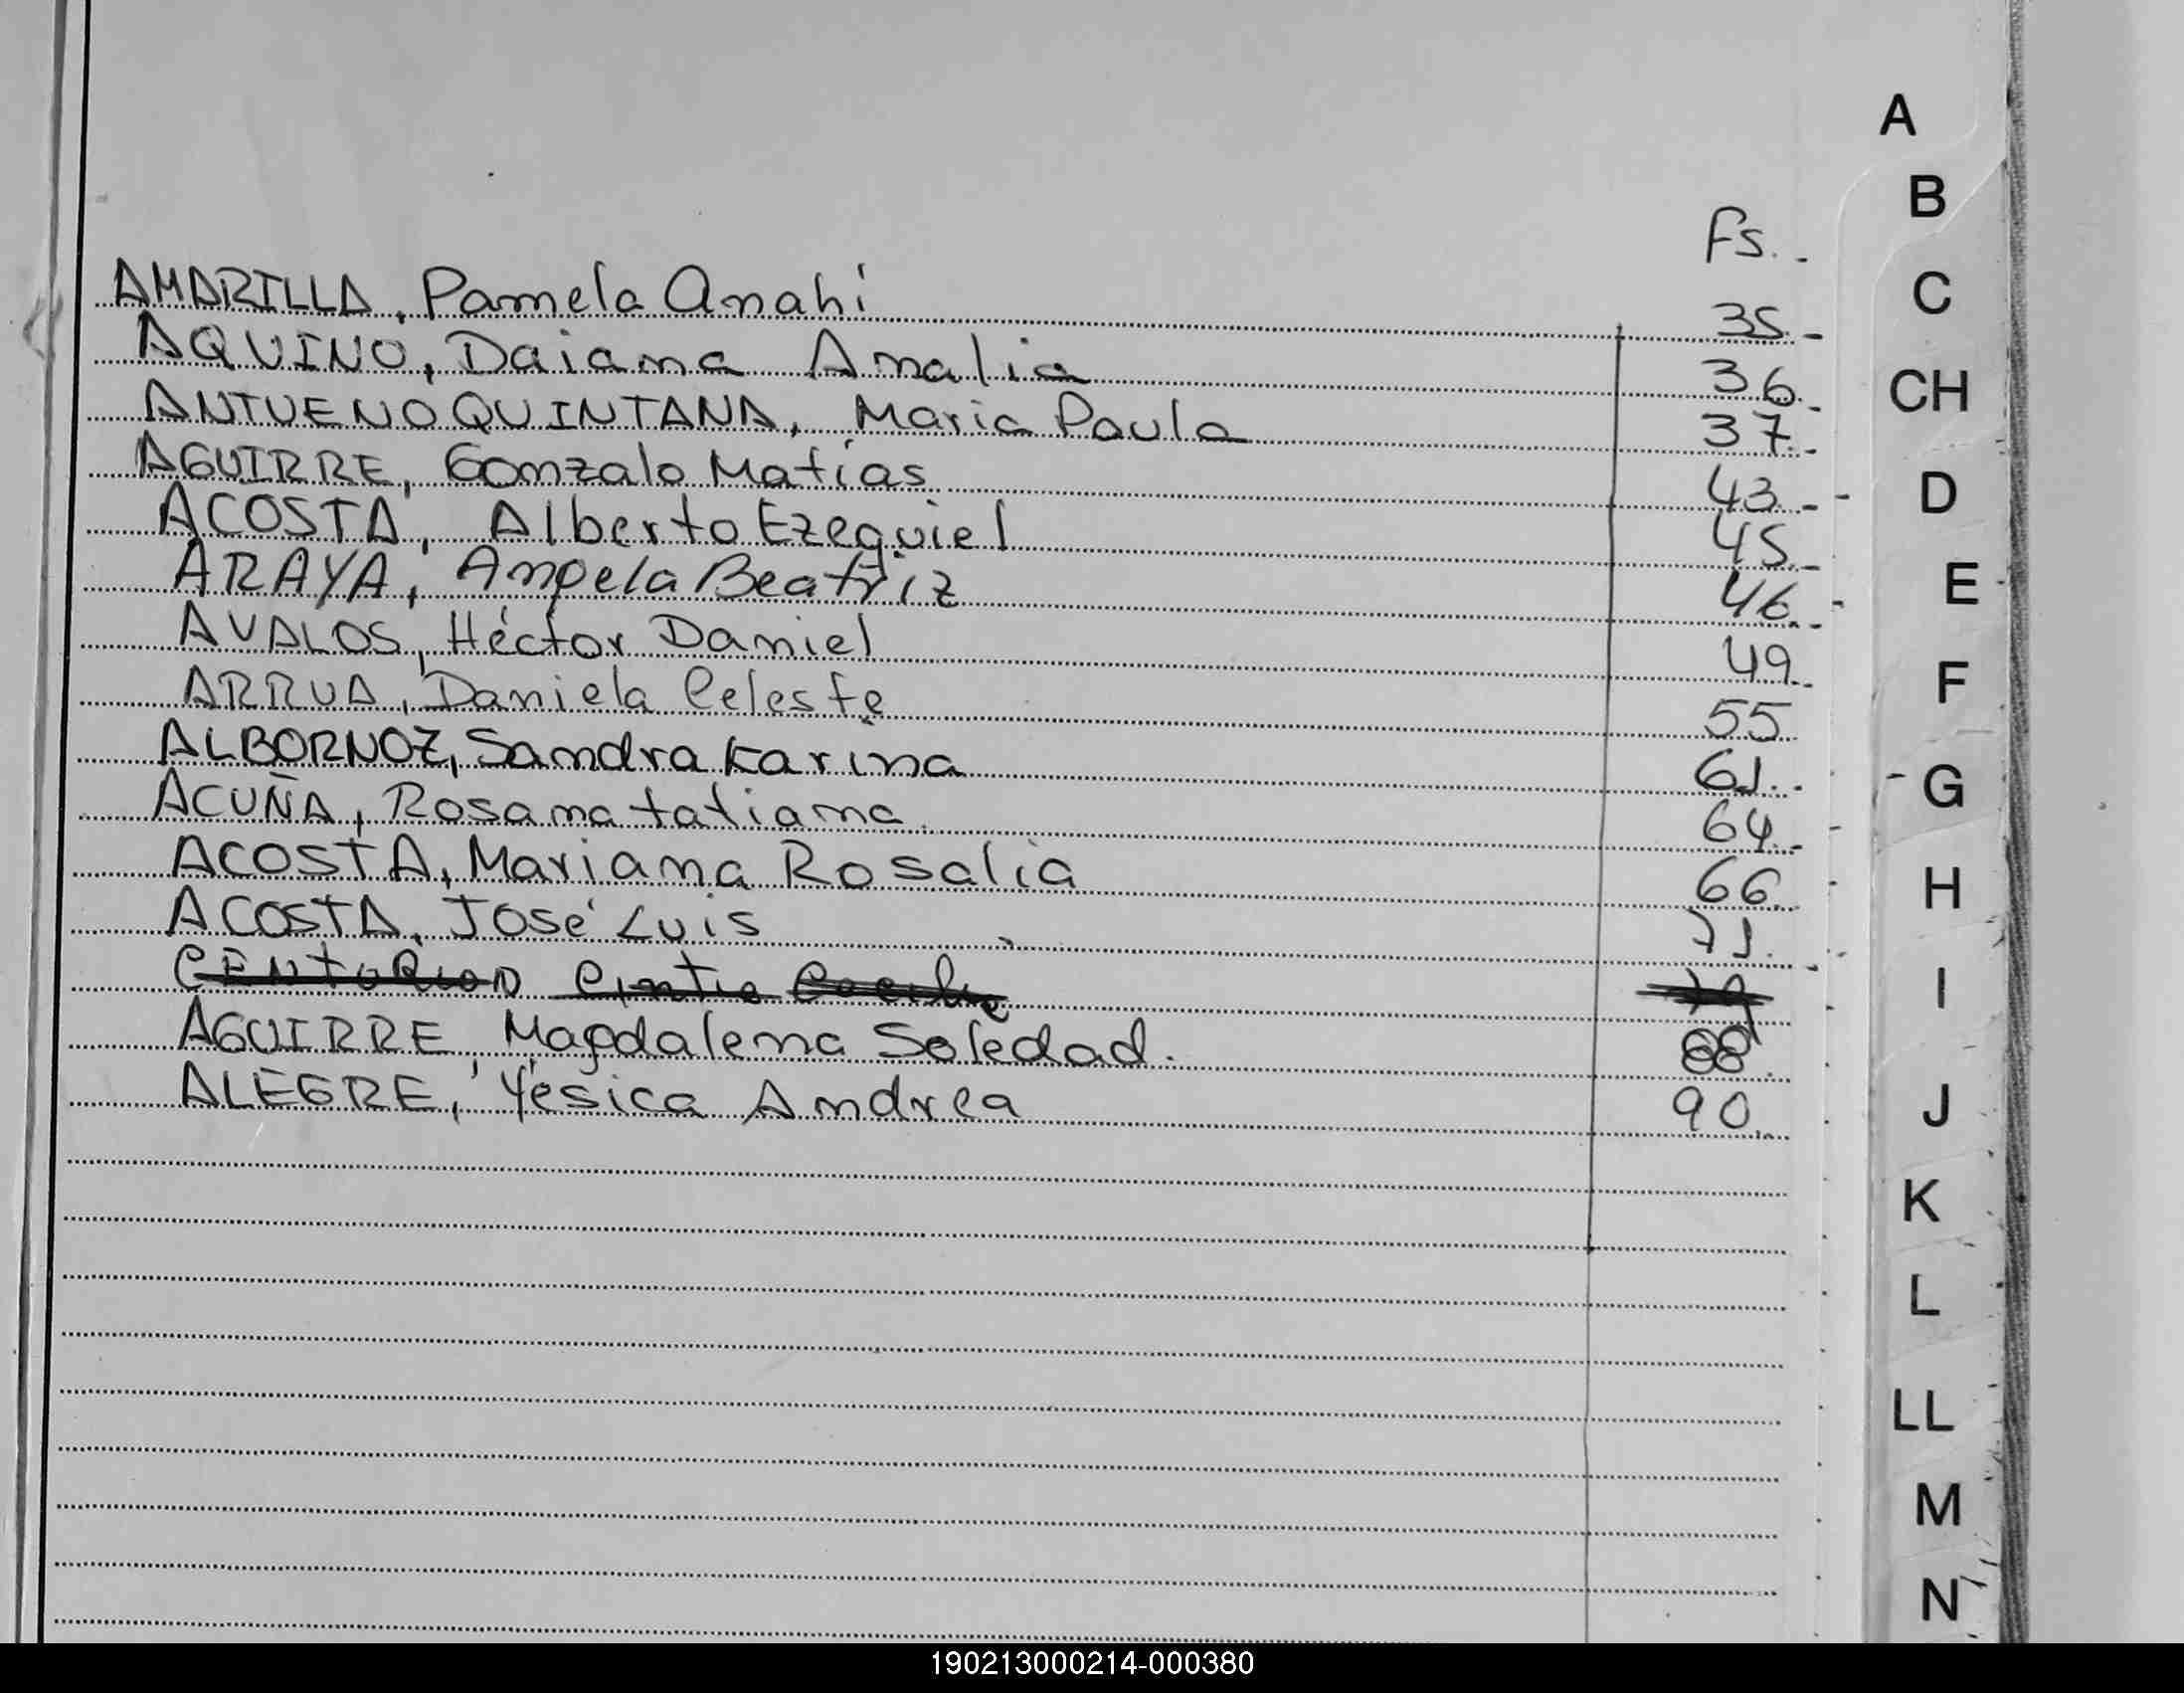 A
B
Fs..
C
AMARILLA, Pamela Anahí 35.-
AQUINO, Daiana Analia 36.-
CH
ANTUENO QUINTANA, Maria Paula 37.-
AGUIRRE, Gonzalo Matías 43.-
D
ACOSTA, Alberto Ezequiel 45.-
ARAYA, Angela Beatriz 46.-
E
AVALOS, Héctor Daniel 49.-
ARRUA, Daniela Celeste 55
F
ALBORNOZ, Sandra Karina 61.-
G
ACUÑA, Rosana tatiana 64.-
ACOSTA, Mariana Rosalia 66.
H
ACOSTA, José Luis 71.-
CENTURION Cintia
I
AGUIRRE, Magdalena Soledad. 88.
ALEGRE, Yésica Andrea 90.
J
K
L
LL
M
N
190213000214-000380